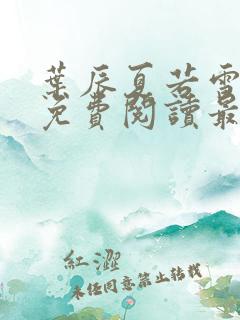 葉辰夏若雪
免費閱讀最
紅澀
未經同意禁止轉載